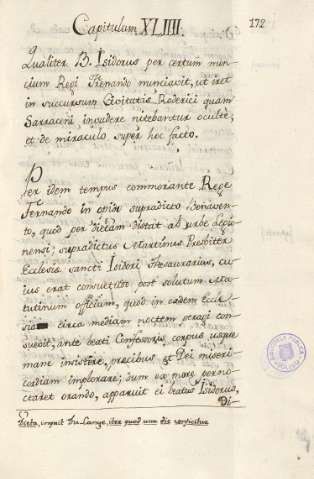 Capitulum XLIIII.
172
Qualiter B. Isidorus per certum nun-
cium Regi Fernando nunciavit, ut iret
in succursum Civitatis Roderici quam
Sarraceni invadere nitebantur occulte,
et de miraculo super hoc facto.
Per idem tempus commorante Rege
Fernando in supradicto Benavento,
quod per dietam distat ab urbe Legio-
nensi; supradictus Martinus Presbiter
Ecclesiæ sancti Isidori Thesaurarius, cu-
jus erat consuetudo post solutum Ma-
tutinum officium, quod in eadem Eccle-
sia circa mediam noctem peragi con-
suevit, ante beati Confessoris corpus usque
mane insistere, precibus et Dei miseri-
cordiam implorare; dum ex more perno-
ctaret orando, apparuit ei beatus Isidorus,
Di-
Dieta, inquit Du-Cange, iter quod una die conficitur